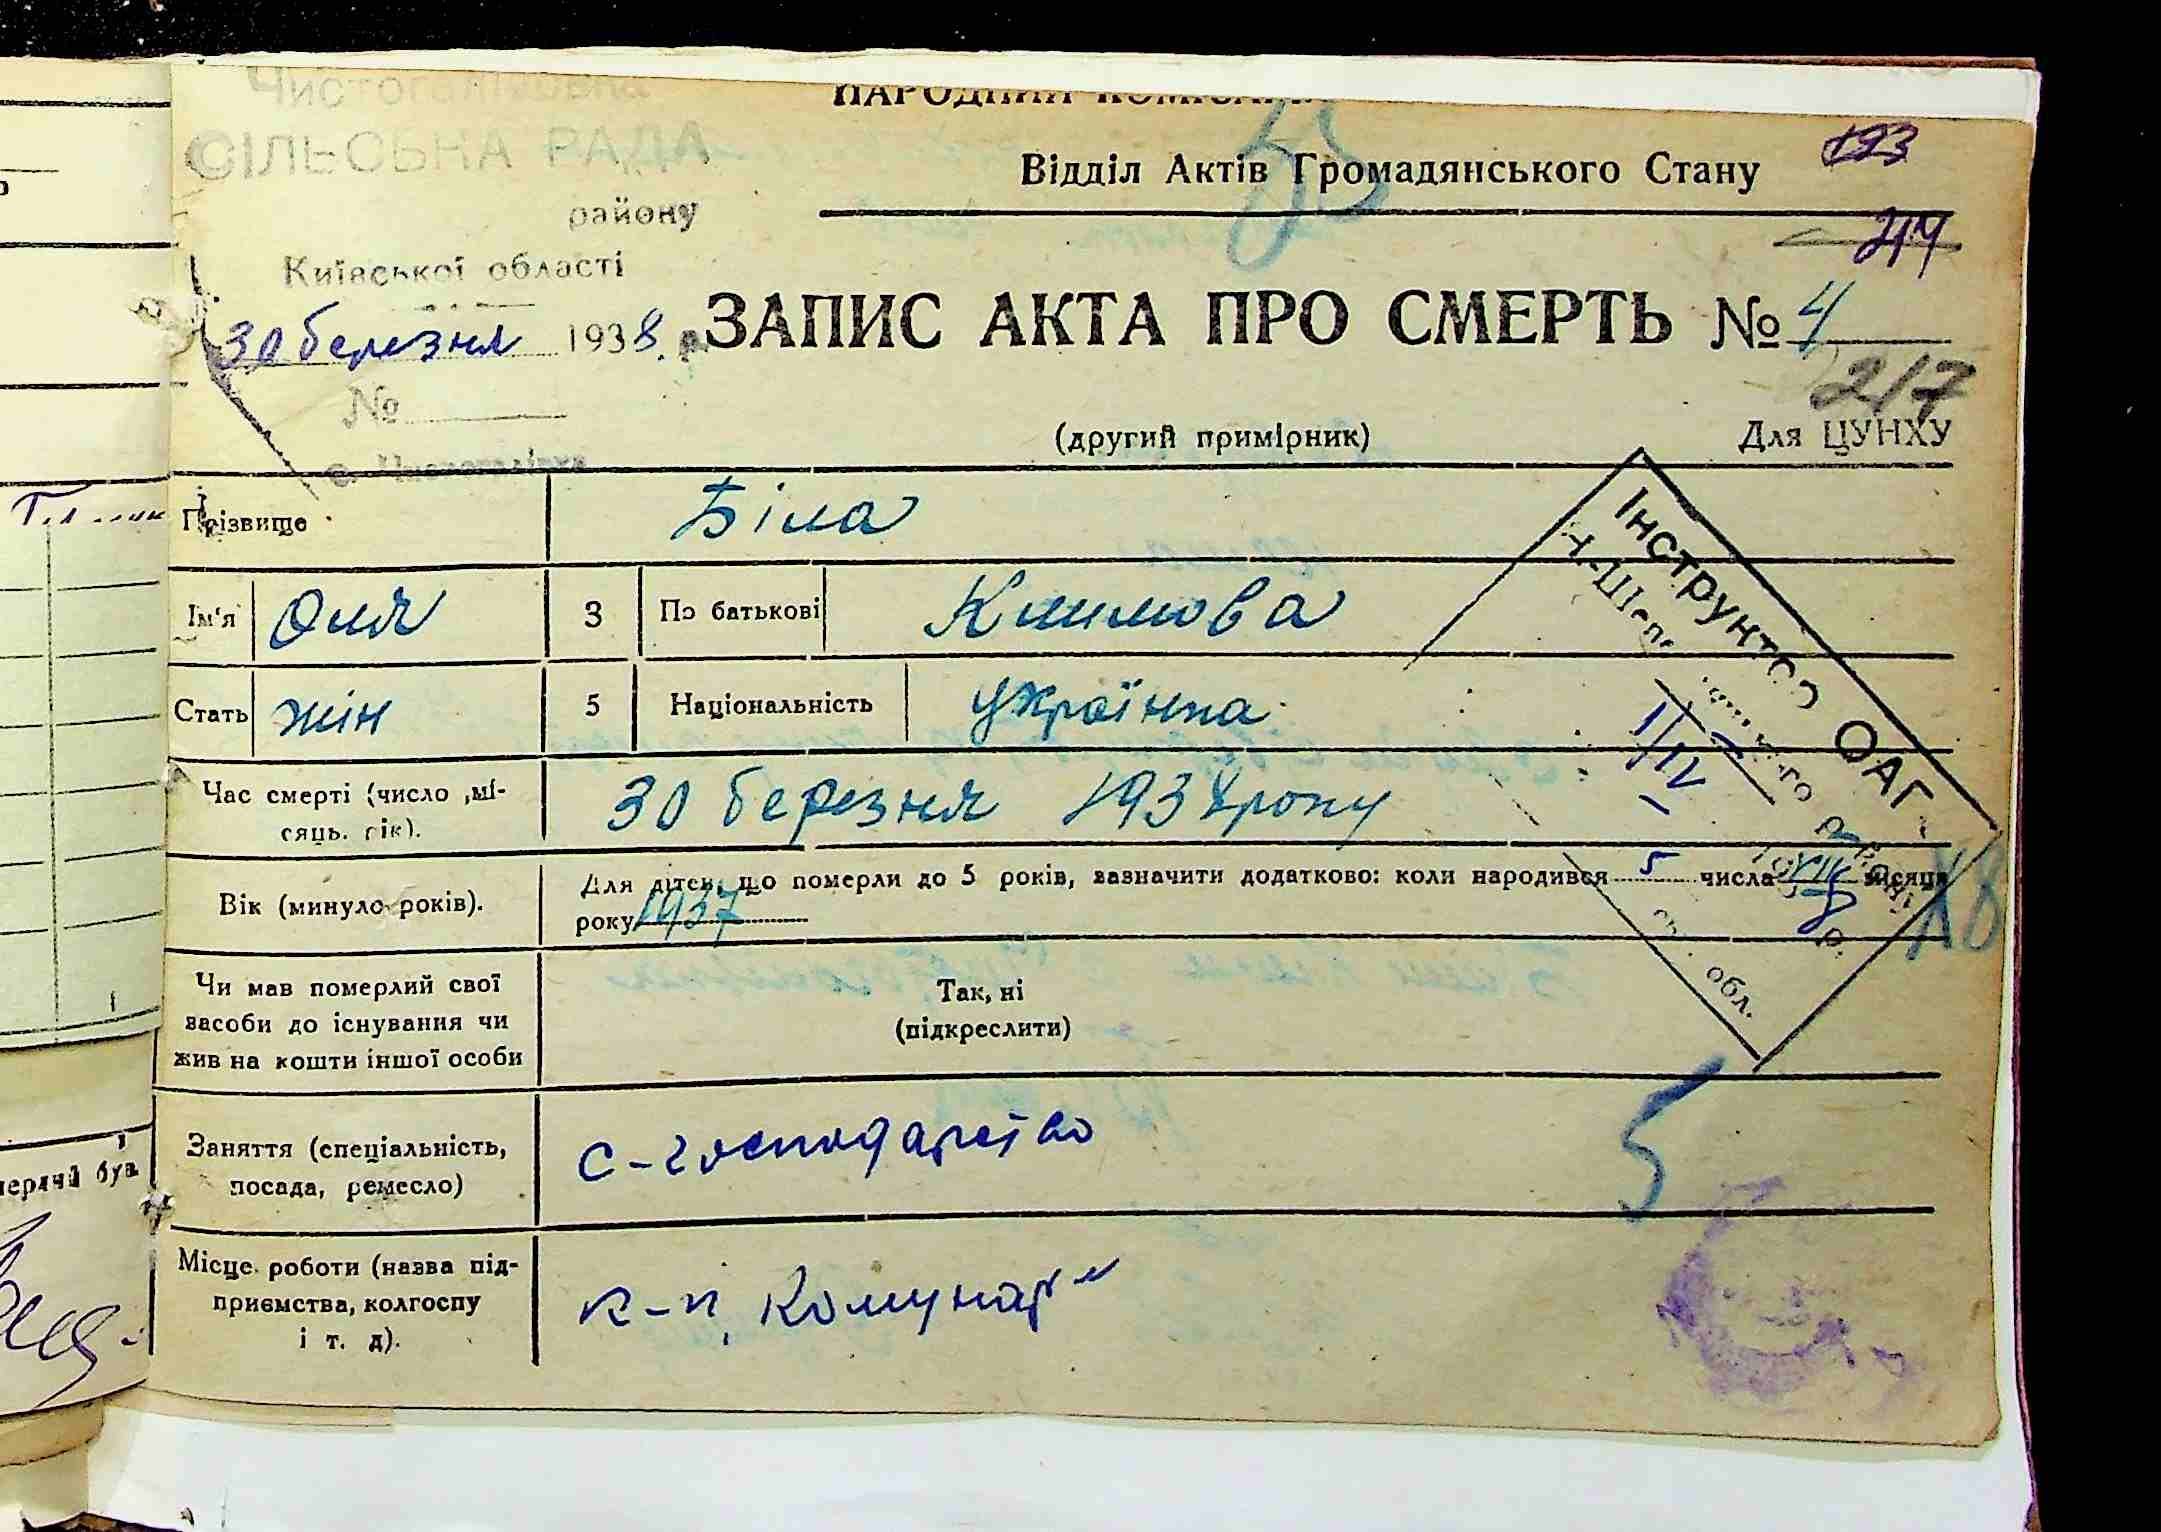 СІЛЬСЬКА РАДА
району
Київської області
30 березня 1938 р.
№
Відділ Актів Громадянського Стану
193
214
ЗАПИС АКТА ПРО СМЕРТЬ № 4
217
(другий примірник)
Для ЦУНХУ
Прізвище Біла
Ім'я Оля 3 По батькові Климова
Стать жін 5 Національність українка
Час смерті (число, мі-
сяць, рік).
30 березня 1938 року
Вік (минуло років).
Для дітей, що померли до 5 років, зазначити додатково: коли народився 5 числа VIII місяця
року 1937
Чи мав померлий свої
засоби до існування чи
жив на кошти іншої особи
Так, ні
(підкреслити)
Заняття (спеціальність,
посада, ремесло)
с-господарство
Місце роботи (назва під-
приємства, колгоспу
і т. д).
к-п, Комунар"
Інструктор ОАГС
I/IV
обл.
5